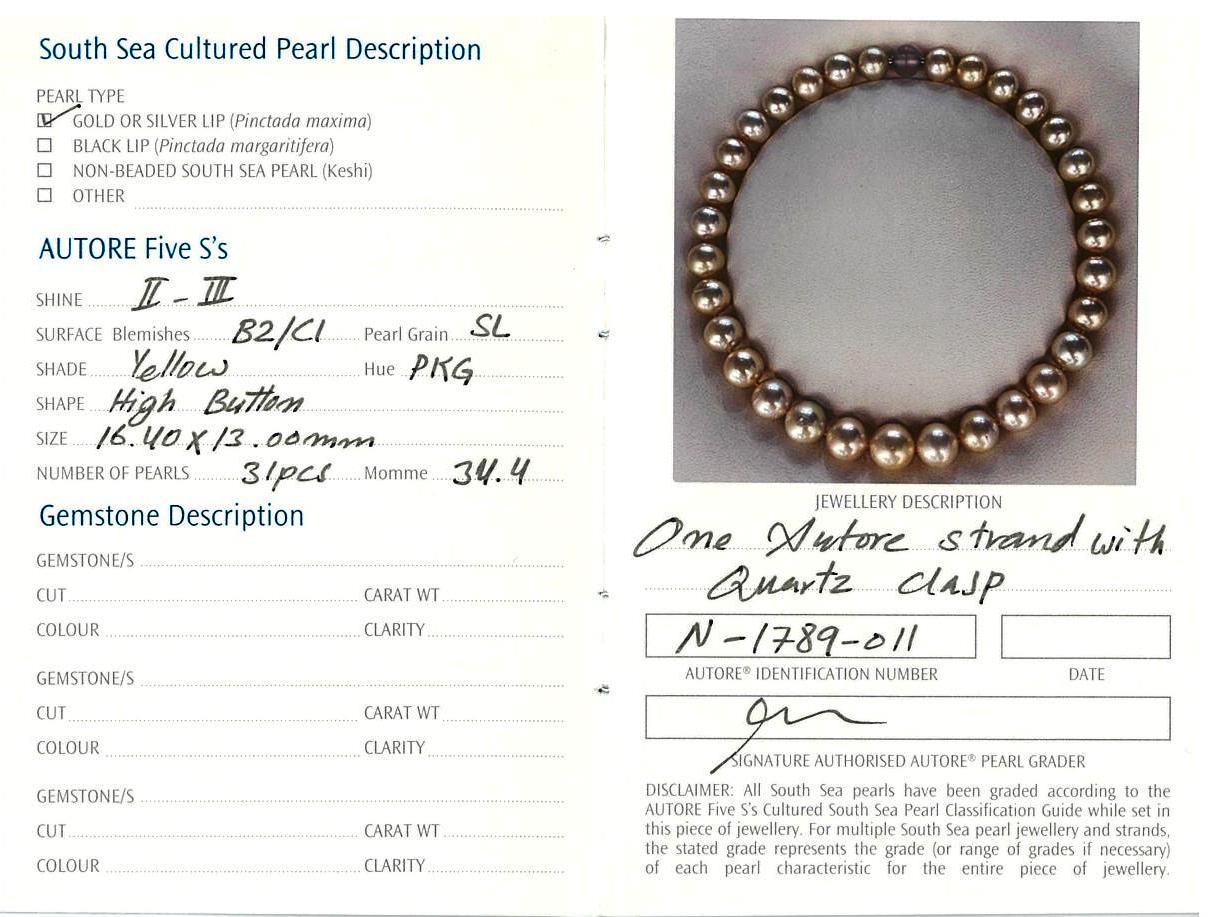 South Sea Cultured Pearl Description
PEARL TYPE
GOLD OR SILVER LIP (Pinctada maxima)
BLACK LIP (Pinctada margaritifera)
NON-BEADED SOUTH SEA PEARL (Keshi)
OTHER
AUTORE Five S's
SHINE II - III
SURFACE Blemishes B2/C1 Pearl Grain SL
SHADE Yellow Hue PKG
SHAPE High Button
SIZE 16.40 X 13.00mm
NUMBER OF PEARLS 31pcs Momme 34.4
Gemstone Description
GEMSTONE/S
CUT CARAT WT
COLOUR CLARITY
GEMSTONE/S
CUT CARAT WT
COLOUR CLARITY
GEMSTONE/S
CUT CARAT WT
COLOUR CLARITY
JEWELLERY DESCRIPTION
One Autore strand with
Quartz clasp
N-1789-011
AUTORE® IDENTIFICATION NUMBER DATE
SIGNATURE AUTHORISED AUTORE® PEARL GRADER
DISCLAIMER: All South Sea pearls have been graded according to the
AUTORE Five S's Cultured South Sea Pearl Classification Guide while set in
this piece of jewellery. For multiple South Sea pearl jewellery and strands,
the stated grade represents the grade (or range of grades if necessary)
of each pearl characteristic for the entire piece of jewellery.